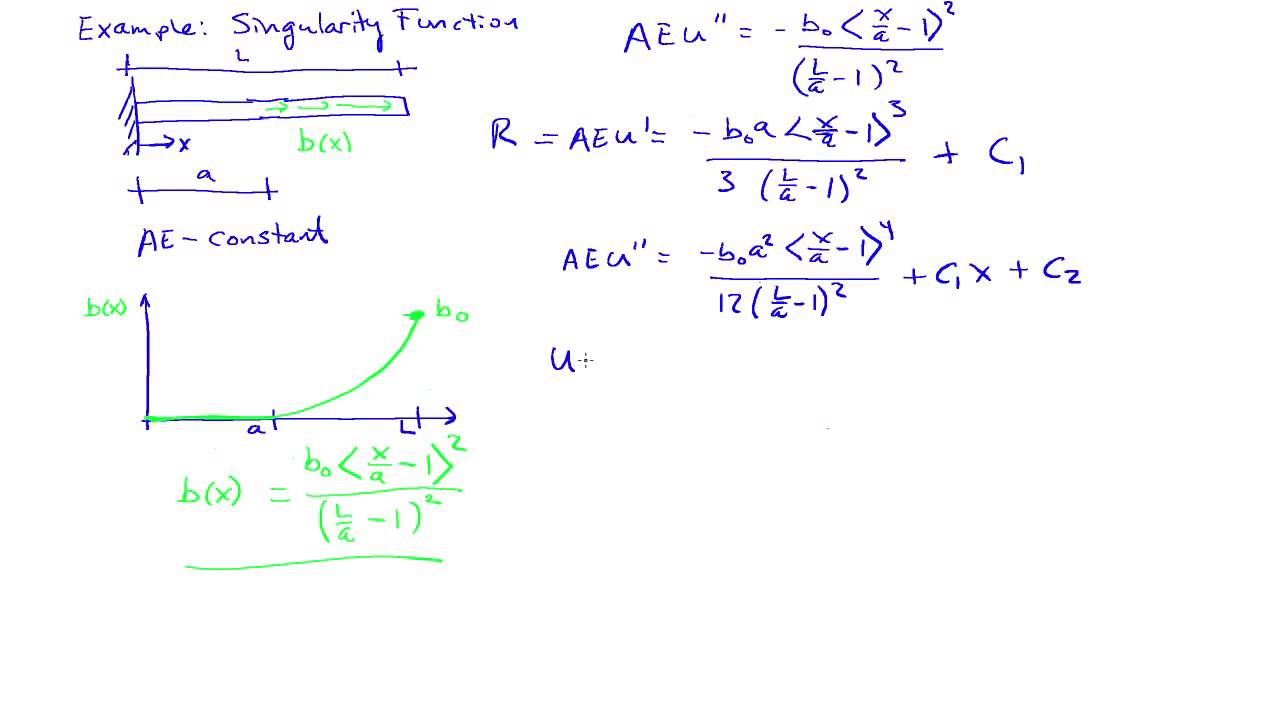 Example: Singularity Function
L
b(x)
x
a
AE - constant
b(x)
b₀
a
L
b(x) = b₀⟨x/a - 1⟩² / (L/a - 1)²
AEu'' = -b₀⟨x/a - 1⟩² / (L/a - 1)²
R = AEu' = -b₀a⟨x/a - 1⟩³ / 3(L/a - 1)² + C₁
AEu'' = -b₀a²⟨x/a - 1⟩⁴ / 12(L/a - 1)² + C₁x + C₂
u